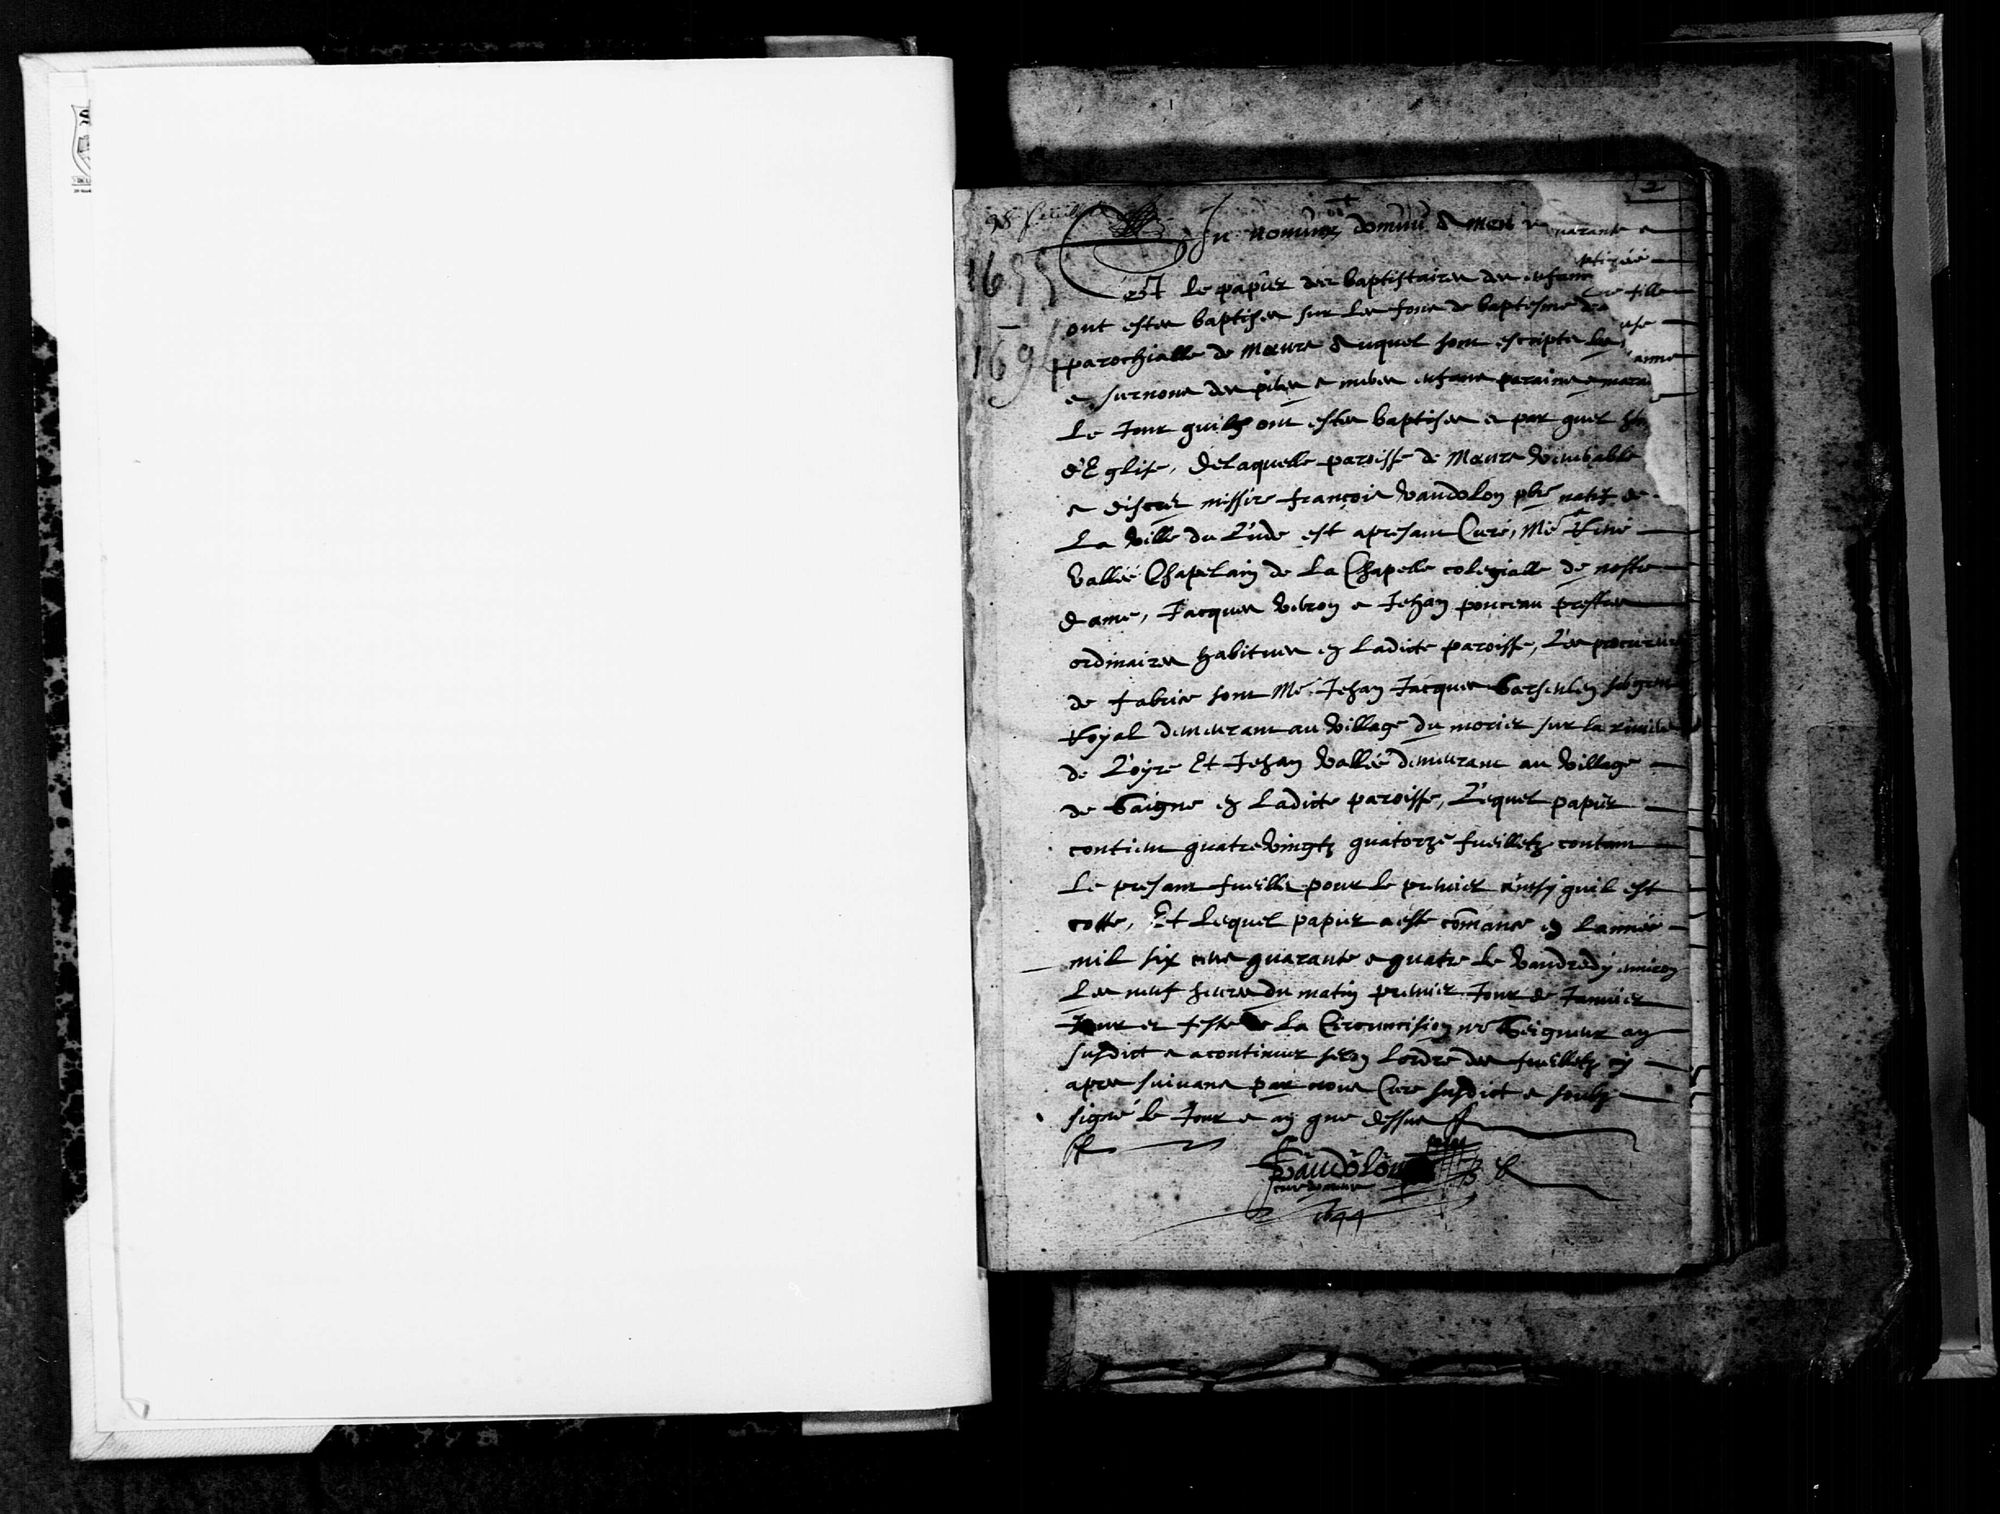 98 feuillets
2
1655
1694
In nomine domini Amen
C'est le papier des baptistaires des enfans
ont estez baptisez sur les fons de baptesme de
parochialle de Moeurs Auquel sont escripts les
e surnoms des peres e meres enfans parains e mara
Le Jour quilz ont estez baptisez e par quel
d'Eglise, Delaquelle paroisse de Moeurs venerable
e discret missire françois Vaudolon pbre natif de
La Ville du Lude est apresant Curé, Me René
Vallée Chapelain de La Chapelle colegialle de nostre
Dame, Jacques Vebron e Jehan ponceau prestres
ordinaires habituez en Ladicte paroisse, Les procureurs
de fabrice sont Me Jehan Jacques
Royal demeurant au Village du morier sur la riviere
de Loyre Et Jehan Vallée demeurant au Village
de Saigne en Ladicte paroisse, Lequel papier
contient quatre vingtz quatorze fueilletz contant
Le presant fueillet pour le premier ainsy quil est
cotté, Et Lequel papier a esté comancé en Lannée
mil six cens quarante e quatre le Vandredy environ
Les neuf heures du matin premier Jour de Janvier
Jour et feste de La Circoncision nre Seigneur an
susdict e a continuer selon Lordre des fueilletz cy
apres suivans par nous Curé susdict e soubz
signé le Jour e an que dessus
Vaudolon
curé de Moeurs
1644
quarante e
ptizée
fille
anne